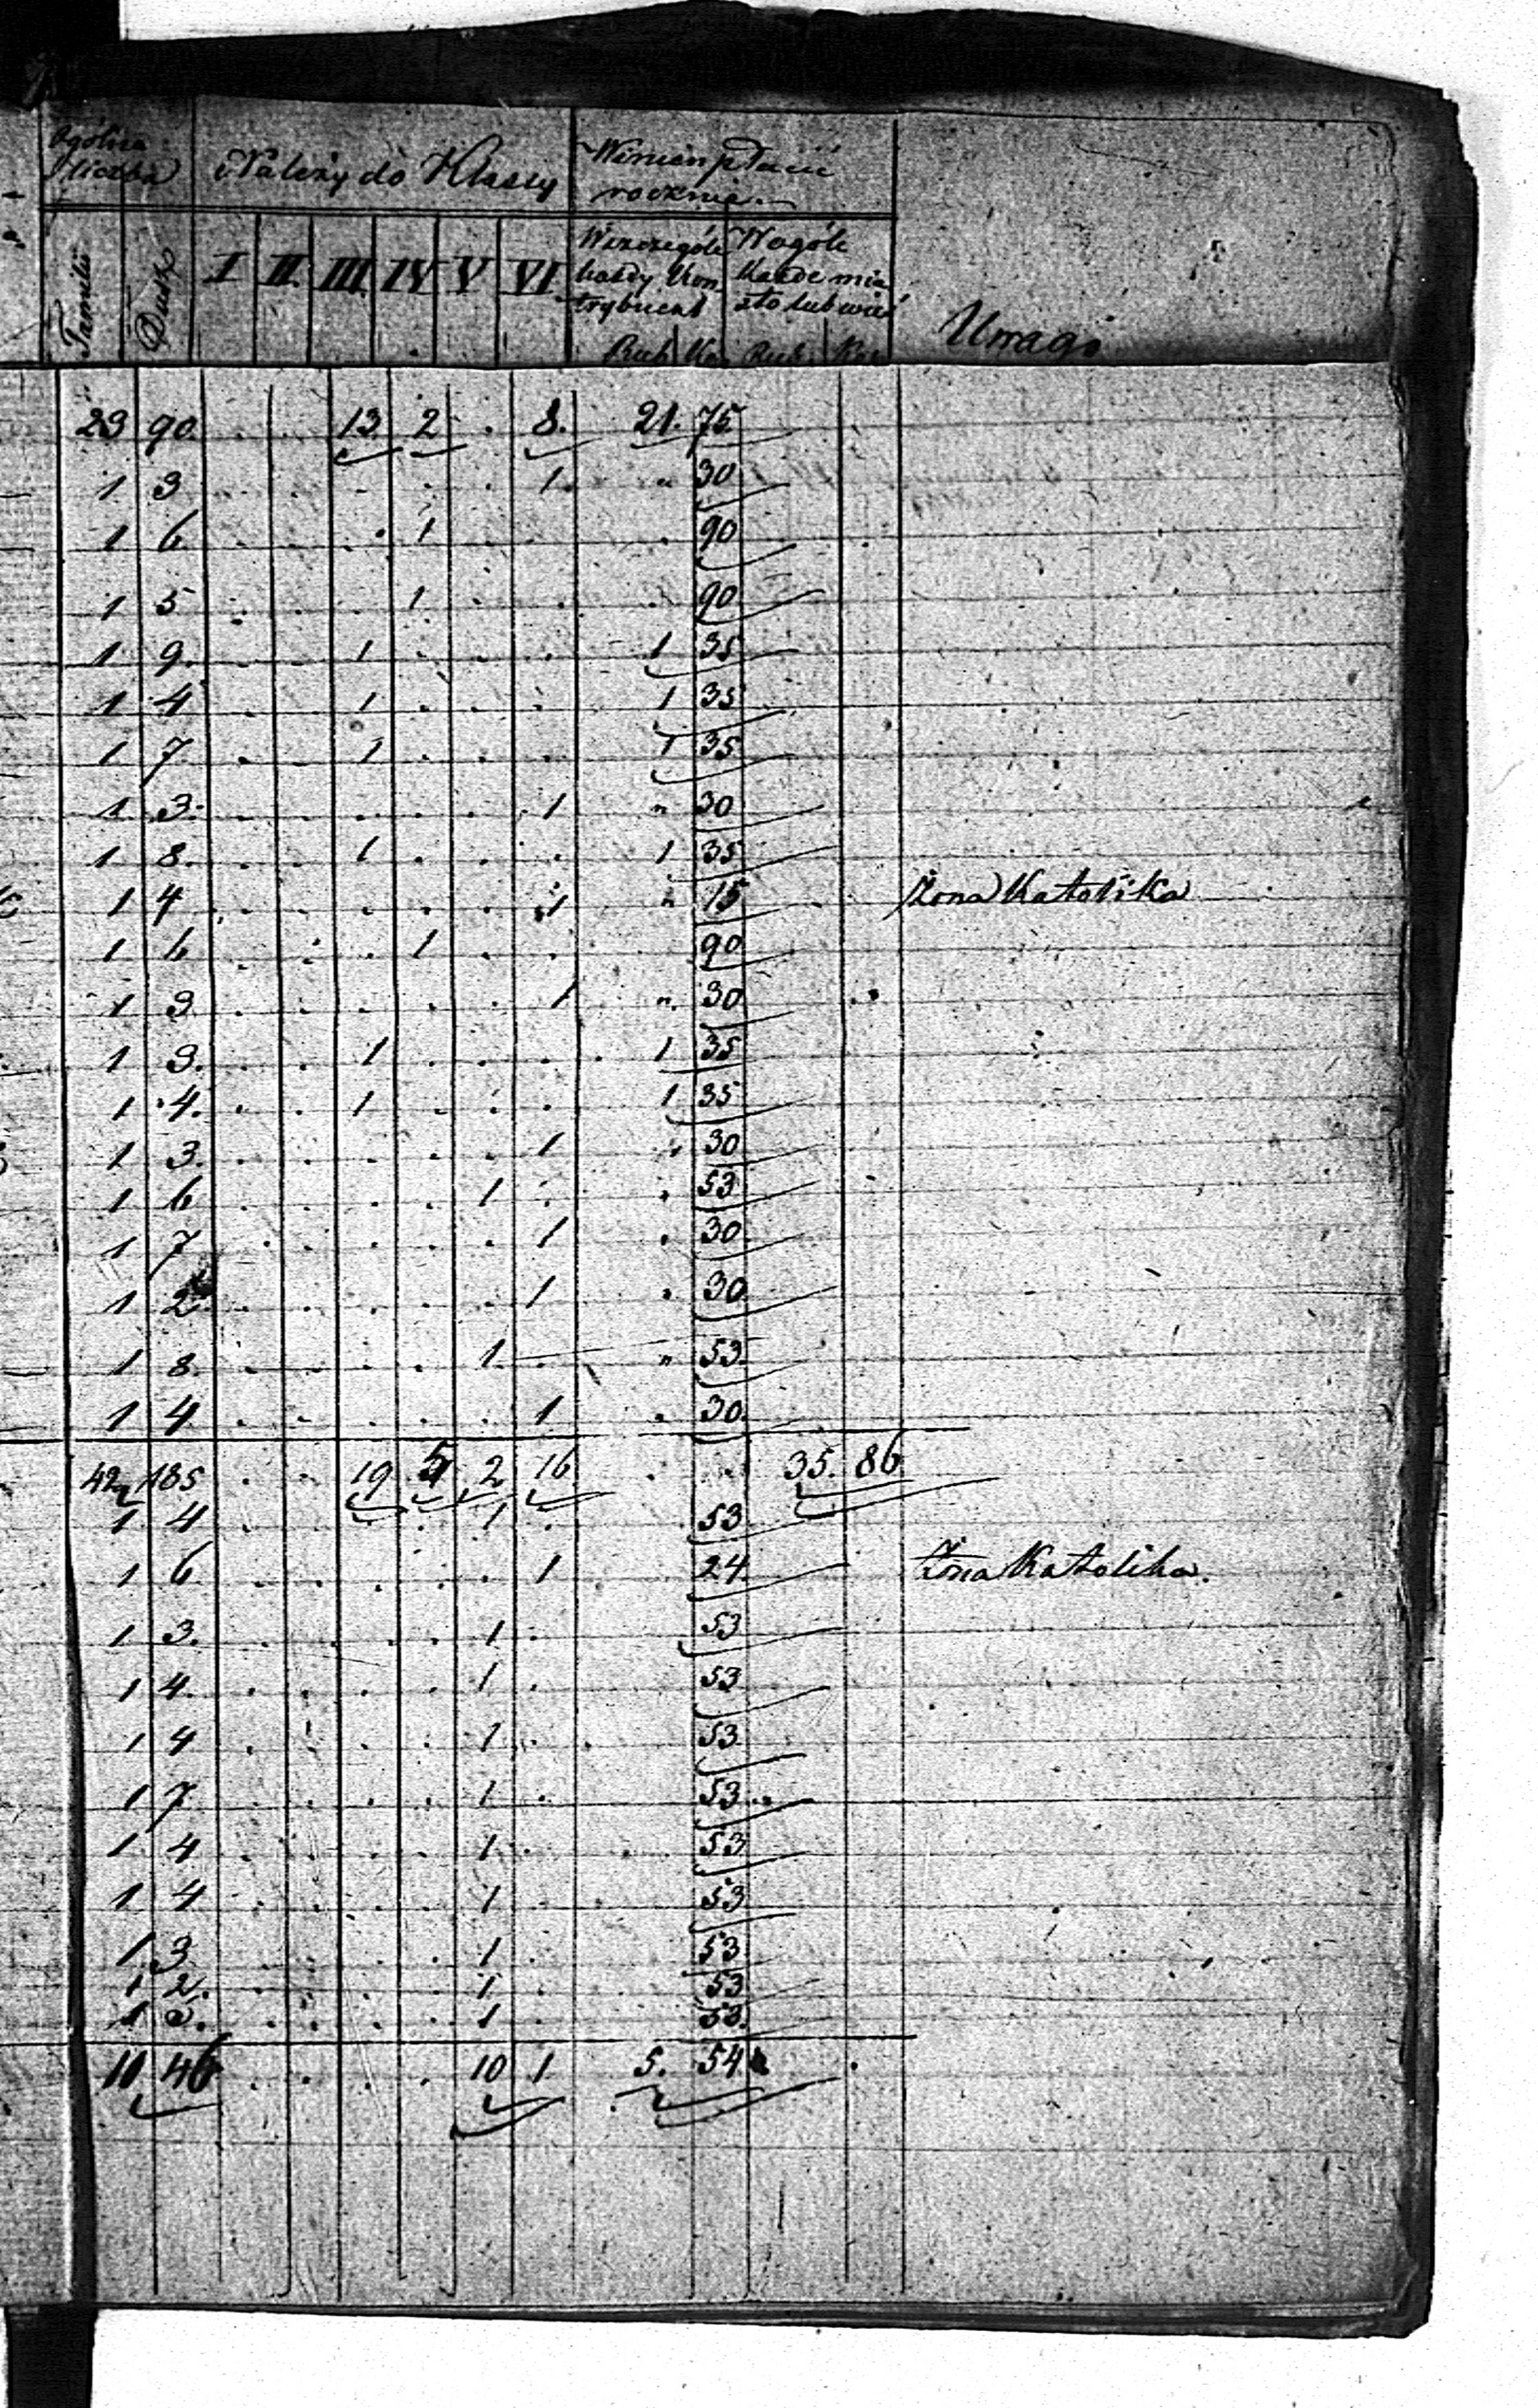 Ogólna liczba
Należy do Klassy
Winien płacić rocznie
Familii Dusz I II III IV V VI
Wszczególe każdy Kontrybuent
Wogóle każde miasto lub wieś
Uwagi
Rub. Ko. Rub. Kop.
23 90 . . 13 2 . 8. 21. 75
1 3 . . . . . 1 " 30
1 6 . . . 1 . 90
1 5 . . . 1 . . . 90
1 9. . . 1 . . . 1 35
1 4 . . 1 . . . 1 35
1 7 . . 1 . . . 1 35
1 3. . . . . . 1 " 30
1 8. . . 1 . . . 1 35
1 4 . . . . . 1 " 15 Żona Katolika
1 6 . . . 1 . . 90
1 3 . . . . . 1 " 30
1 3. . . 1 . . . 1 35
1 4. . . 1 . . . 1 35
1 3. . . . . . 1 " 30
1 6 . . . . 1 . . 53
1 7 . . . . . 1 . 30
1 2 . . . . . 1 . 30
1 8 . . . . 1 . " 53
1 4 . . . . . 1 . 30
42 185 . . 19 5 2 16 . . 35. 86
1 4 . . . . 1 . 53
1 6 . . . . . 1 24 Żona Katolika.
1 3. . . . . 1 . 53
1 4 . . . . 1 . 53
1 4 . . . . 1 . 53
1 7 . . . . 1 . 53
1 4 . . . . 1 . 53
1 4 . . . . 1 . 53
1 3 . . . . 1 . 53
1 2. . . . . 1 . 53
1 5. . . . . 1 . 53.
11 46 . . . . 10 1 5. 54